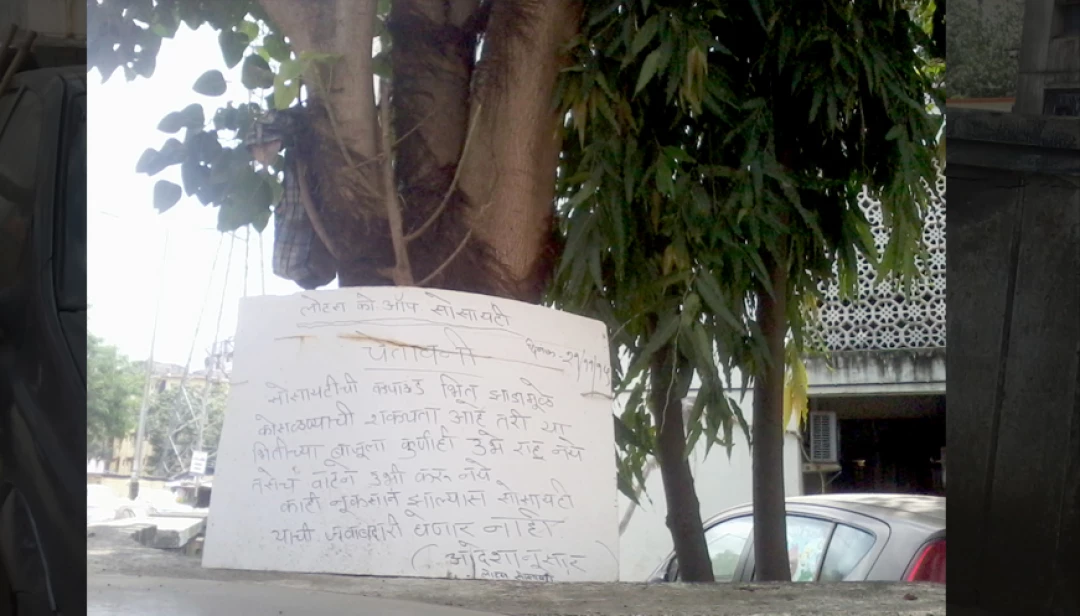 लोटस को ऑप सोसायटी
चेतावनी
दिनांक - २१/११/१५
सोसायटीची कंपाऊंड भिंत झाडामुळे
कोसळण्याची शक्यता आहे तरी या
भिंतीच्या बाजूला कुणीही उभे राहू नये
तसेच वाहने उभी करू नये
काही नुकसान झाल्यास सोसायटी
याची जबाबदारी घेणार नाही
(आदेशानुसार)